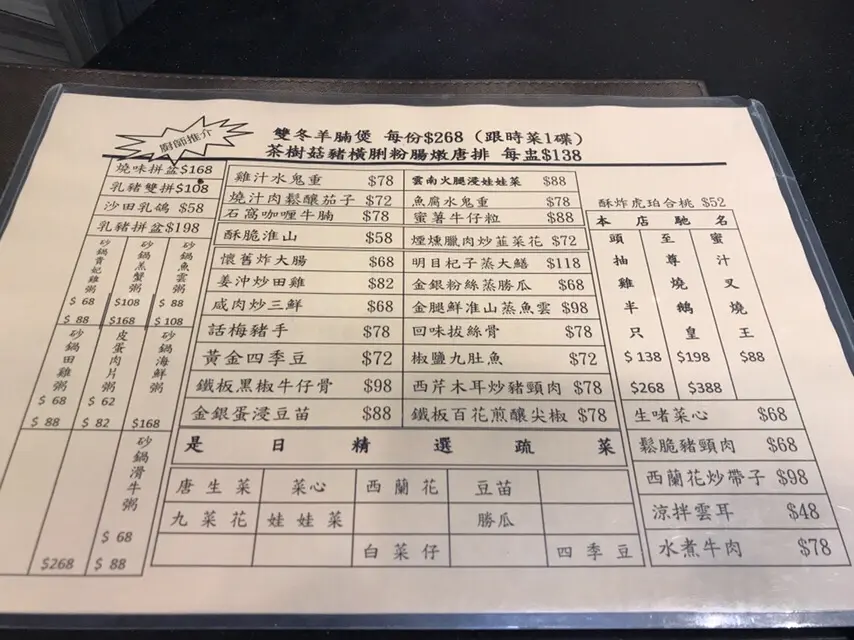 廚師推介
雙冬羊腩煲 每份$268（跟時菜1碟）
茶樹菇豬橫脷粉腸燉唐排 每盅$138
燒味拼盆$168
乳豬雙拼$108
沙田乳鴿 $58
乳豬拼盆$198
砂鍋貴妃雞粥 $68 $88
砂鍋蒸蟹粥 $108 $168
砂鍋魚雲粥 $88 $108
砂鍋田雞粥 $68 $88
皮蛋肉片粥 $62 $82
砂鍋海鮮粥 $168
$268
砂鍋滑牛粥 $68 $88
雞汁水鬼重 $78
燒汁肉鬆釀茄子 $72
石窩咖喱牛腩 $78
酥脆淮山 $58
懷舊炸大腸 $68
姜沖炒田雞 $82
咸肉炒三鮮 $68
話梅豬手 $78
黃金四季豆 $72
鐵板黑椒牛仔骨 $98
金銀蛋浸豆苗 $88
雲南火腿浸娃娃菜 $88
魚腐水鬼重 $78
蜜薯牛仔粒 $88
煙燻臘肉炒韮菜花 $72
明目杞子蒸大鱔 $118
金銀粉絲蒸勝瓜 $68
金腿鮮淮山蒸魚雲 $98
回味拔絲骨 $78
椒鹽九肚魚 $72
西芹木耳炒豬頸肉 $78
鐵板百花煎釀尖椒 $78
酥炸虎珀合桃 $52
本店馳名
頭抽雞半只 $138 $268
至尊燒鵝皇 $198 $388
蜜汁叉燒王 $88
生啫菜心 $68
鬆脆豬頸肉 $68
西蘭花炒帶子 $98
涼拌雲耳 $48
水煮牛肉 $78
是日精選疏菜
唐生菜 菜心 西蘭花 豆苗
九菜花 娃娃菜 勝瓜
白菜仔 四季豆